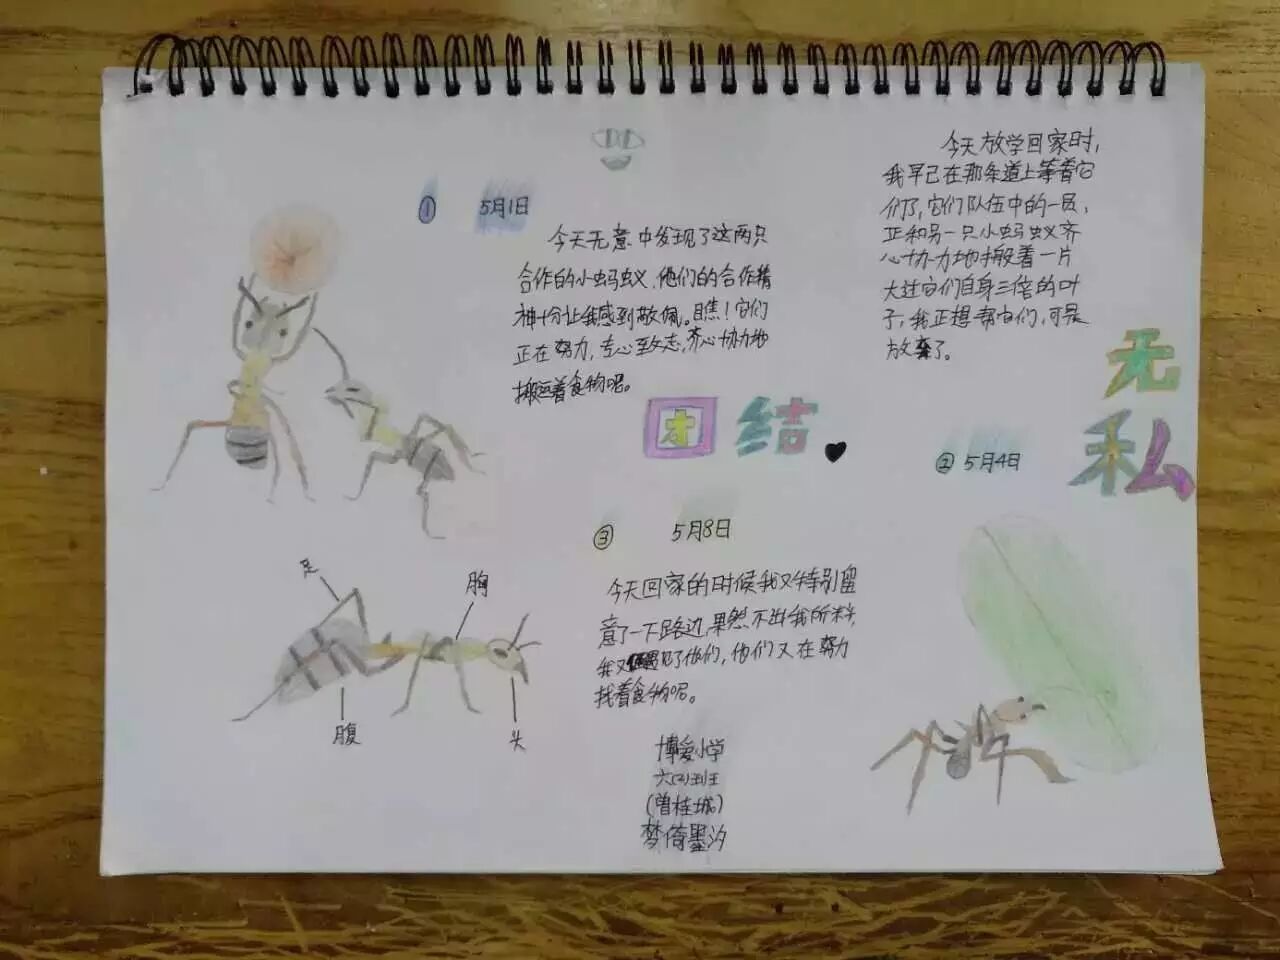 ① 5月1日
今天无意中发现了这两只
合作的小蚂蚁,他们的合作精
神十分让我感到敬佩。瞧!它们
正在努力,专心致志,齐心协力地
搬运着食物呢。
团结
今天放学回家时,
我早已在那条道上等着它
们了,它们队伍中的一员,
正和另一只小蚂蚁齐
心协力地搬着一片
大过它们自身三倍的叶
子,我正想帮它们,可是
放弃了。
无
私
② 5月4日
③ 5月8日
今天回家的时候我又特别留
意了一下路边,果然不出我所料,
我又遇见了他们,他们又在努力
找着食物呢。
足
胸
腹
头
博爱小学
六(2)班
(曾桂城)
梦倚墨汐